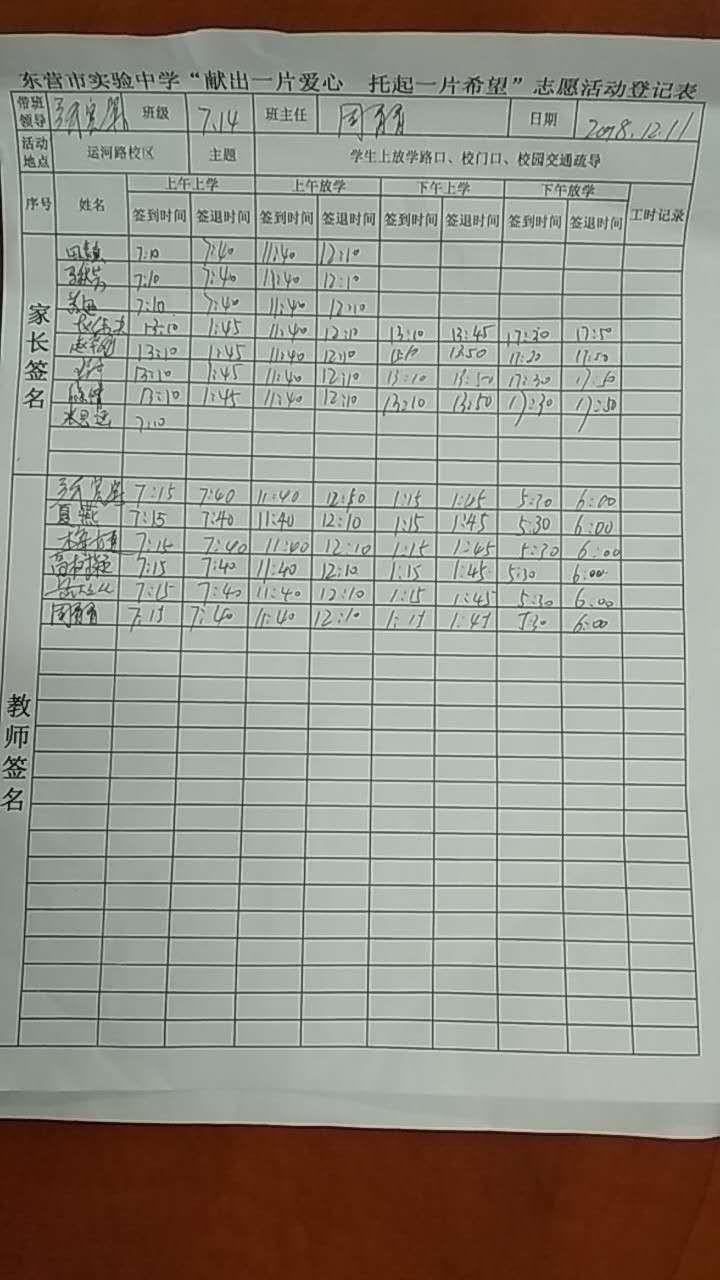 东营市实验中学“献出一片爱心 托起一片希望”志愿活动登记表
带班领导 班级 7.14 班主任 周青青 日期 2018.12.11
活动地点 运河路校区 主题 学生上放学路口、校门口、校园交通疏导
序号 姓名 上午上学 上午放学 下午上学 下午放学 工时记录
签到时间 签退时间 签到时间 签退时间 签到时间 签退时间 签到时间 签退时间
家长签名
7:10 7:40 11:40 12:10
7:10 7:40 11:40 12:10
7:10 7:40 11:40 12:10
13:10 1:45 11:40 12:10 13:10 13:45 17:30 17:50
13:10 1:45 11:40 12:10 13:50 17:30 17:50
13:10 1:45 11:40 12:10 13:10 13:50 17:30 17:50
13:10 1:45 11:40 12:10 13:10 13:50 17:30 17:50
7:10
教师签名
7:15 7:40 11:40 12:50 1:15 1:45 5:30 6:00
夏燕 7:15 7:40 11:40 12:10 1:15 1:45 5:30 6:00
7:15 7:40 11:40 12:10 1:15 1:45 5:30 6:00
7:15 7:40 11:40 12:10 1:15 1:45 5:30 6:00
7:15 7:40 11:40 12:10 1:15 1:45 5:30 6:00
周青青 7:15 7:40 11:40 12:10 1:15 1:45 5:30 6:00